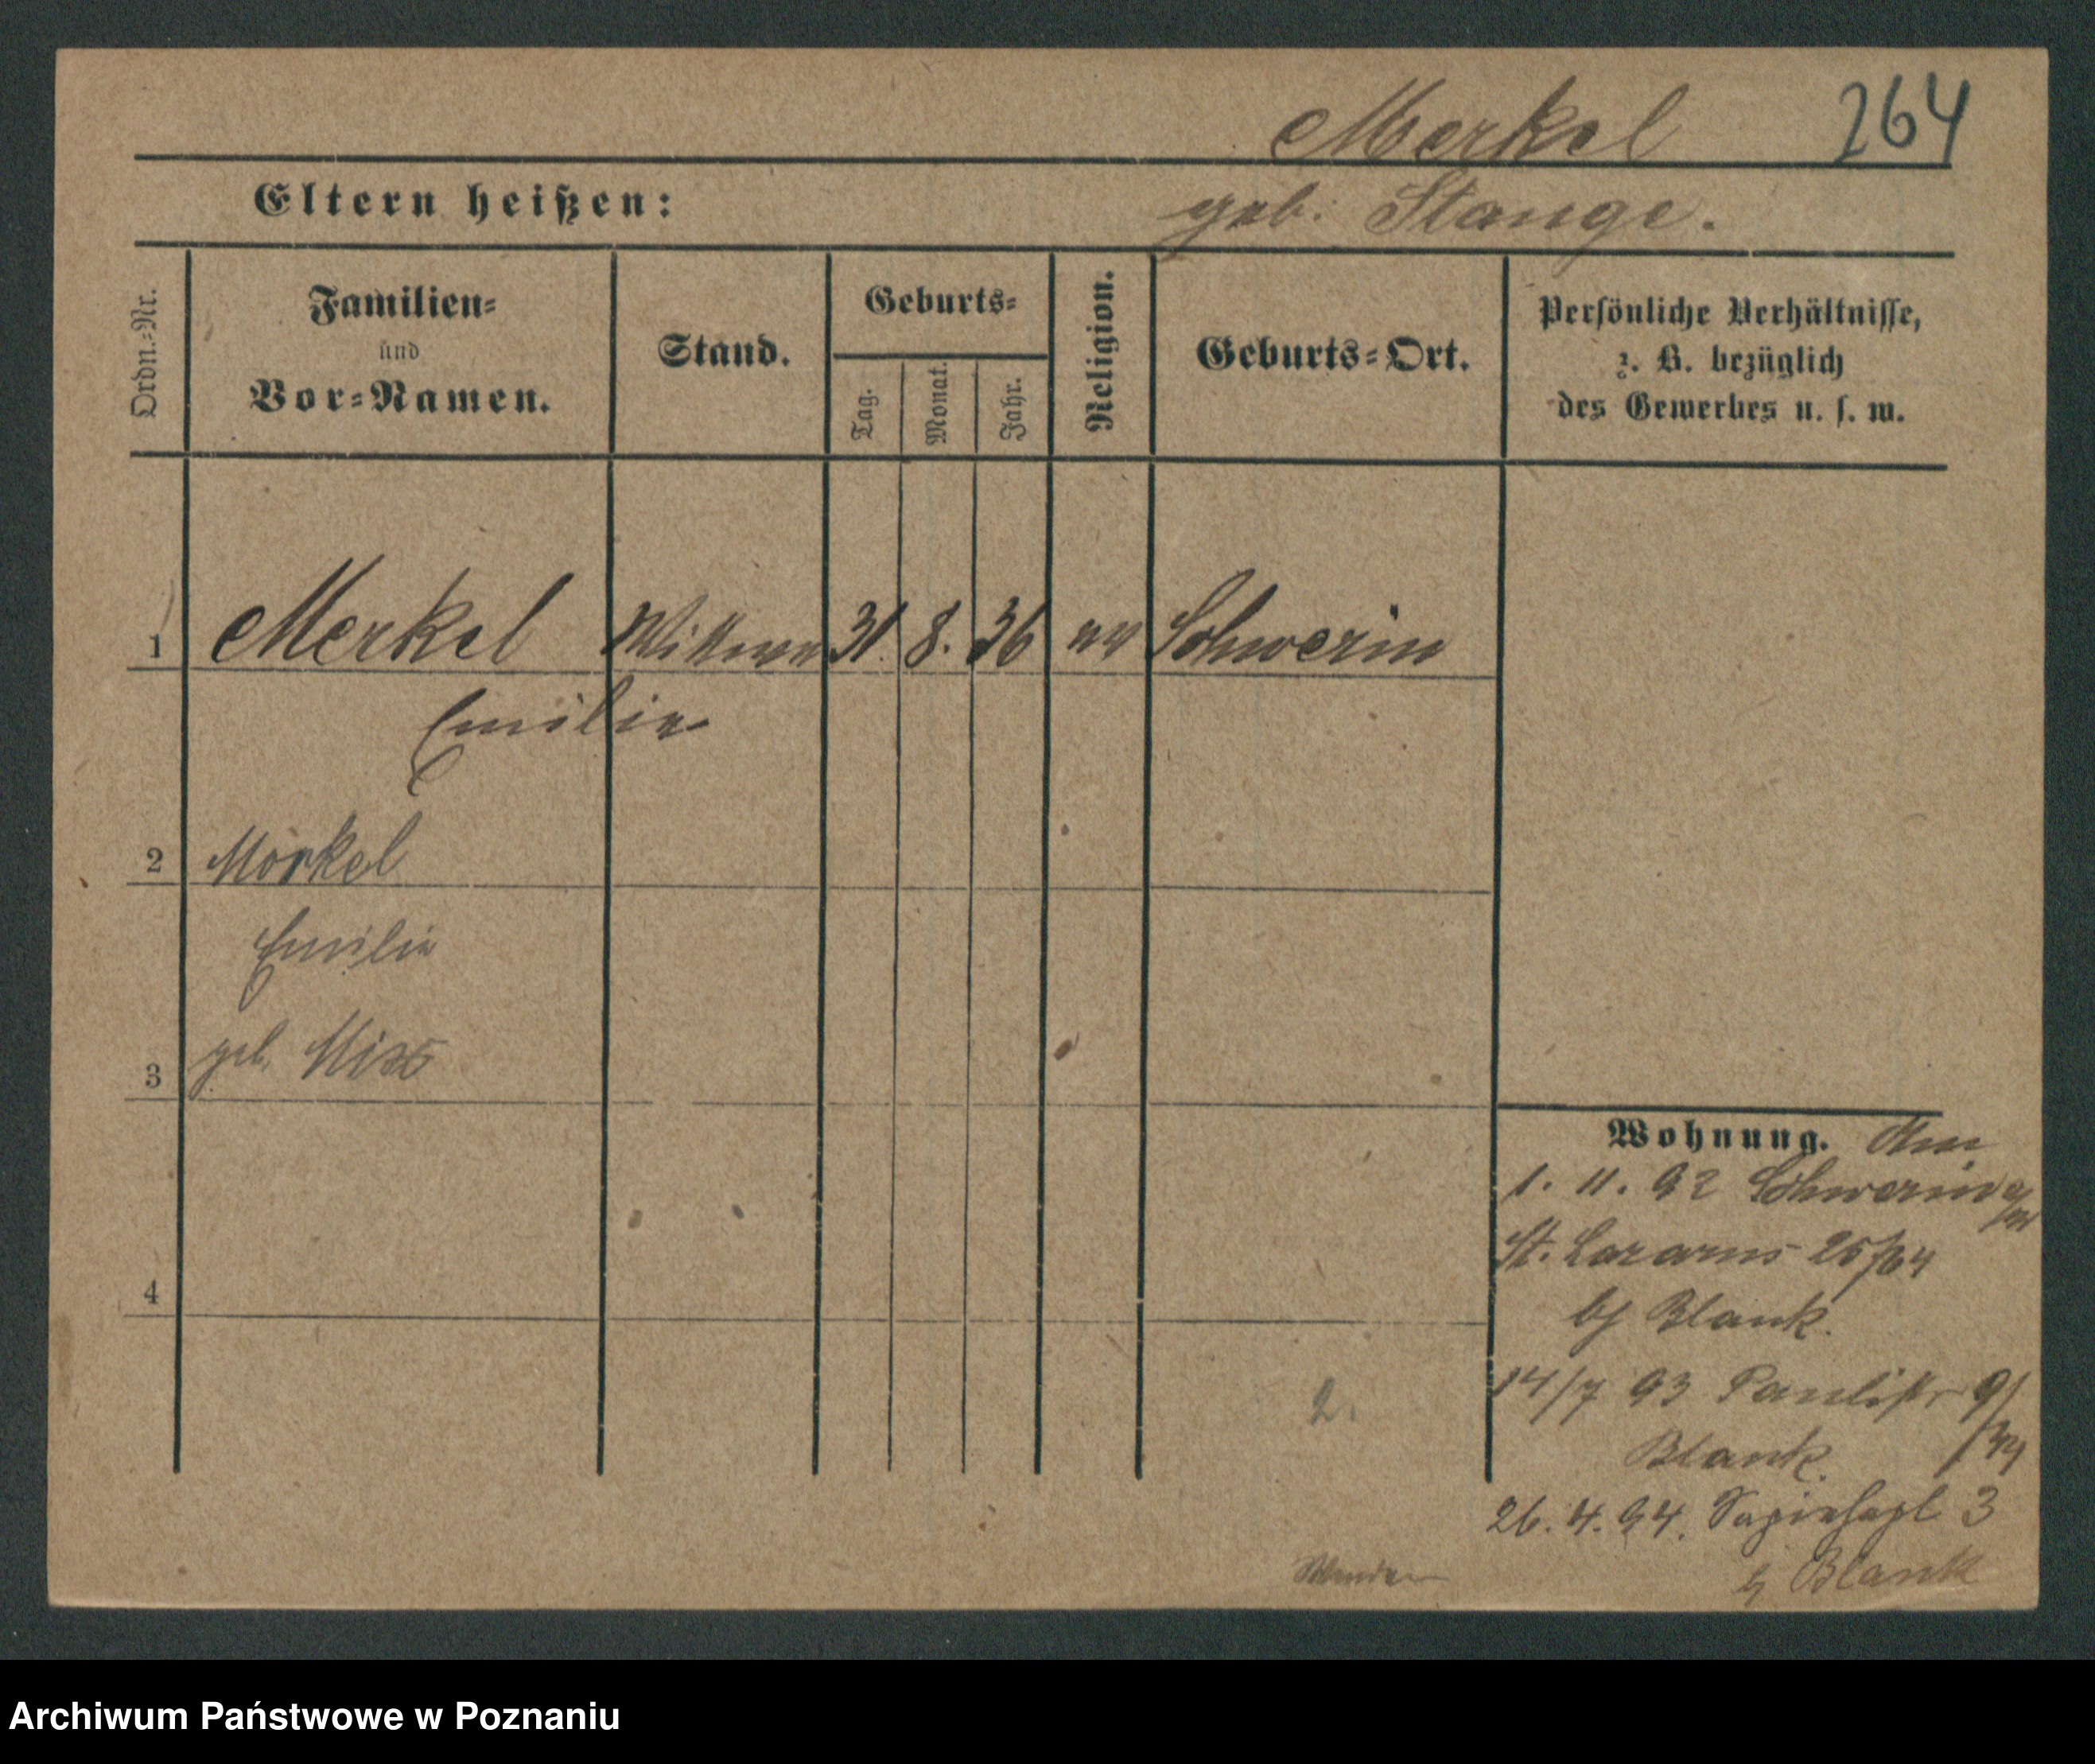 Merkel 264
Eltern heißen: geb. Stange.
Ordn.=Nr.
Familien=
und
Vor=Namen.
Stand.
Geburts=
Tag.
Monat.
Jahr.
Religion.
Geburts=Ort.
Persönliche Verhältnisse,
z. B. bezüglich
des Gewerbes u. s. w.
1 Merkel Wittwe 31. 8. 36 ev Schwerin
Emilie
2 Merkel
Emilie
3 geb.
4
Wohnung. Am
1. 11. 92 Schwerin a/W
St. Lazarus 25/64
b/ Blank.
14/7 93 Paulistr 9/
Blank.
26. 4. 94. Sapiehapl 3
b/ Blank
2.
Wenden